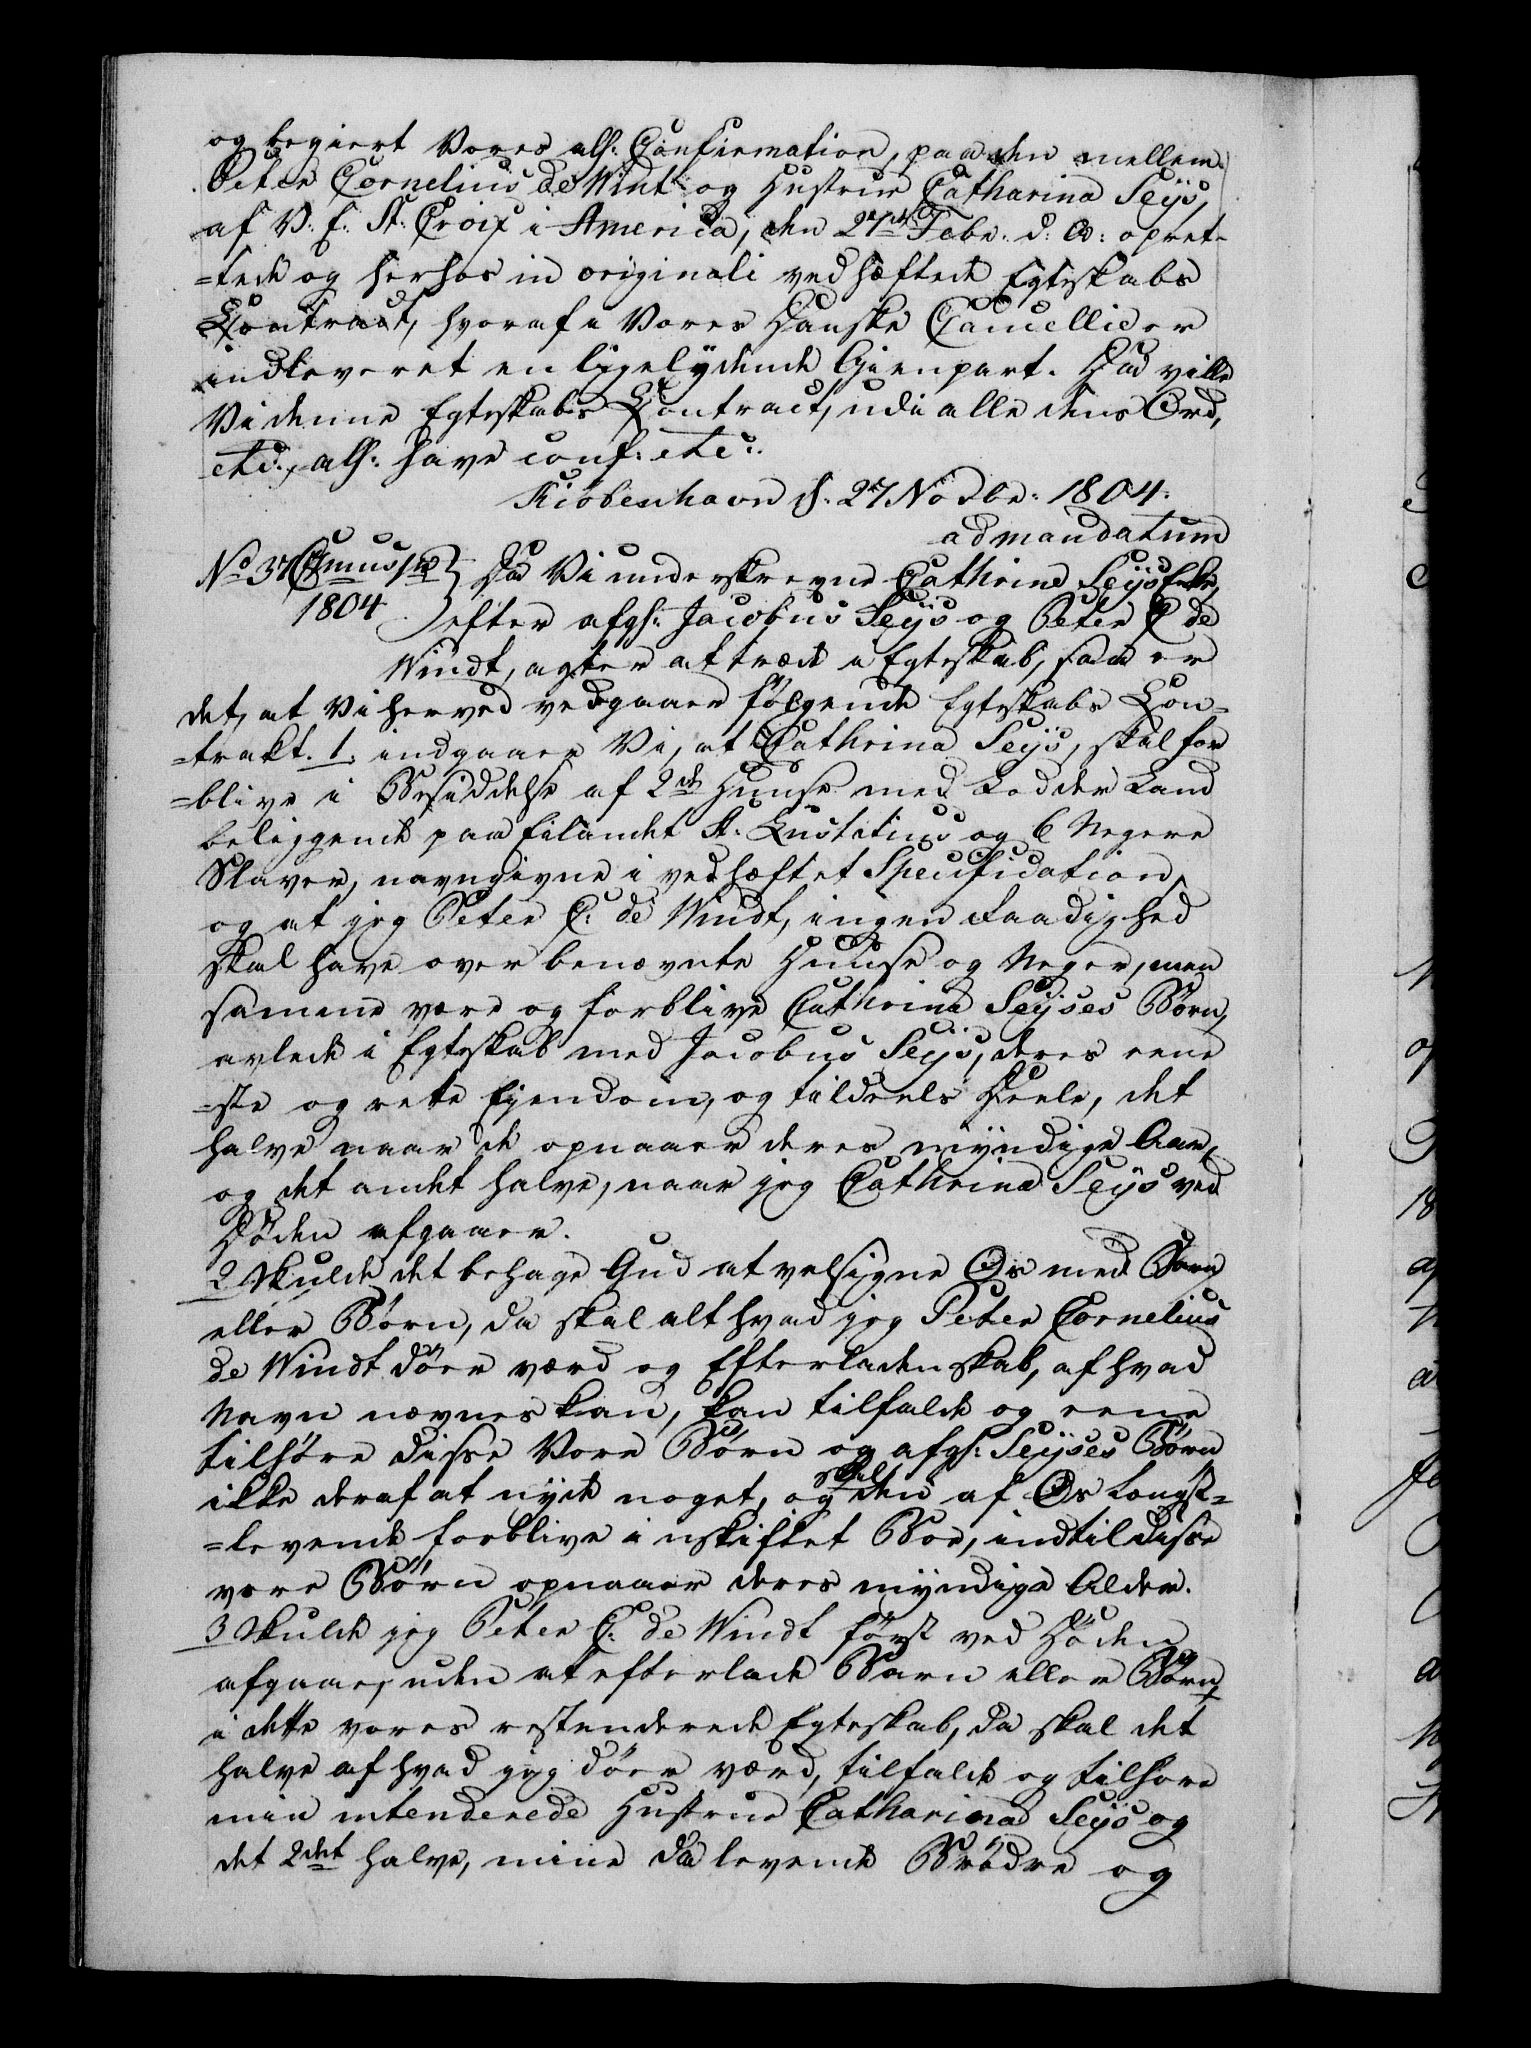 og begiert Vores allr: Confirmation, paa den mellem
Peter Cornelius de Windt og Hustrue Catharina Seÿs,
af V. E. St: Croix i America, den 27de Febr. d: A: opret-
=tede og herhos in originali vedhæftede Egteskabs
Contract, hvoraf i Vores Danske Cancellie er
indleveret en ligelÿdende Gienpart. Da ville
Vi denne Egteskabs Contract, udi alle dens Ord,
etc:, allr: have conf: etc:.
Kiöbenhavn d: 27 Novbr: 1804.
ad mandatum
No 37
1804
Da Vi underskrevne Cathrina Seÿs Enke
efter afg: Jacobus Seÿs og Peter C de
Windt, agter at træde i Egteskab, saa er
det, at Vi herved vedgaaer fölgende Egteskabs Con-
=trakt. 1. indgaaer Vi, at Cathrina Seÿs, skal for
=blive i Besiddelse af 2de Huuse med Lodder Land
beliggende paa Eilandet St: Eustatius og 6 Negere
Slaver, navngivne i vedhæftet Specification
og at jeg Peter C: de Windt, ingen Raadighed
skal have over benævnte Huuse og Neger, men
samme være og forblive Cathrina Seÿses Börn,
avlede i Egteskab med Jacobus Seÿs, deres eene
=ste og rette Ejendom, og tildeels Deele, det
halve naar de opnaaer deres mÿndige Aar,
og det andet halve, naar jeg Cathrina Seÿs ved
Döden afgaaer.
2 Skulde det behage Gud at velsigne Os med Barn
eller Börn, da skal alt hvad jeg Peter Cornelius
de Windt döer værd og Efterladenskab, af hvad
Navn nævnes kan, kan tilfalde og eene
tilhöre disse Vore Börn og afg: Seÿses Börn
ikke deraf at nÿde noget, og skal den af Os længst-
=levende forblive i uskiftet Boe, indtil disse
vore Börn opnaaer deres mÿndige Alder.
3 Skulde jeg Peter C: de Windt först ved Döden
afgaae, uden at efterlade Barn eller Börn,
i dette vores restenderede Egteskab, da skal det
halve af hvad jeg döer værd, tilfalde og tilhöre
min intenderede Hustrue Catharina Seÿs og
det 2det halve, mine da levende Brödre og